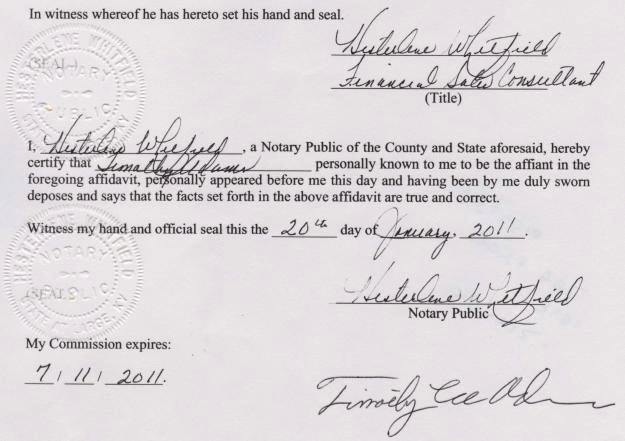 In witness whereof he has hereto set his hand and seal.
HESTERLENE WHITFIELD
NOTARY
PUBLIC
(SEAL)
Hesterlene Whitfield
Financial Sales Consultant
(Title)
I, Hesterlene Whitfield, a Notary Public of the County and State aforesaid, hereby
certify that Timothy Adams personally known to me to be the affiant in the
foregoing affidavit, personally appeared before me this day and having been by me duly sworn
deposes and says that the facts set forth in the above affidavit are true and correct.
Witness my hand and official seal this the 20th day of January, 2011.
HESTERLENE WHITFIELD
NOTARY
PUBLIC
STATE AT LARGE, KY
(SEAL)
Hesterlene Whitfield
Notary Public
My Commission expires:
7/11/2011.
Timothy Lee Adams